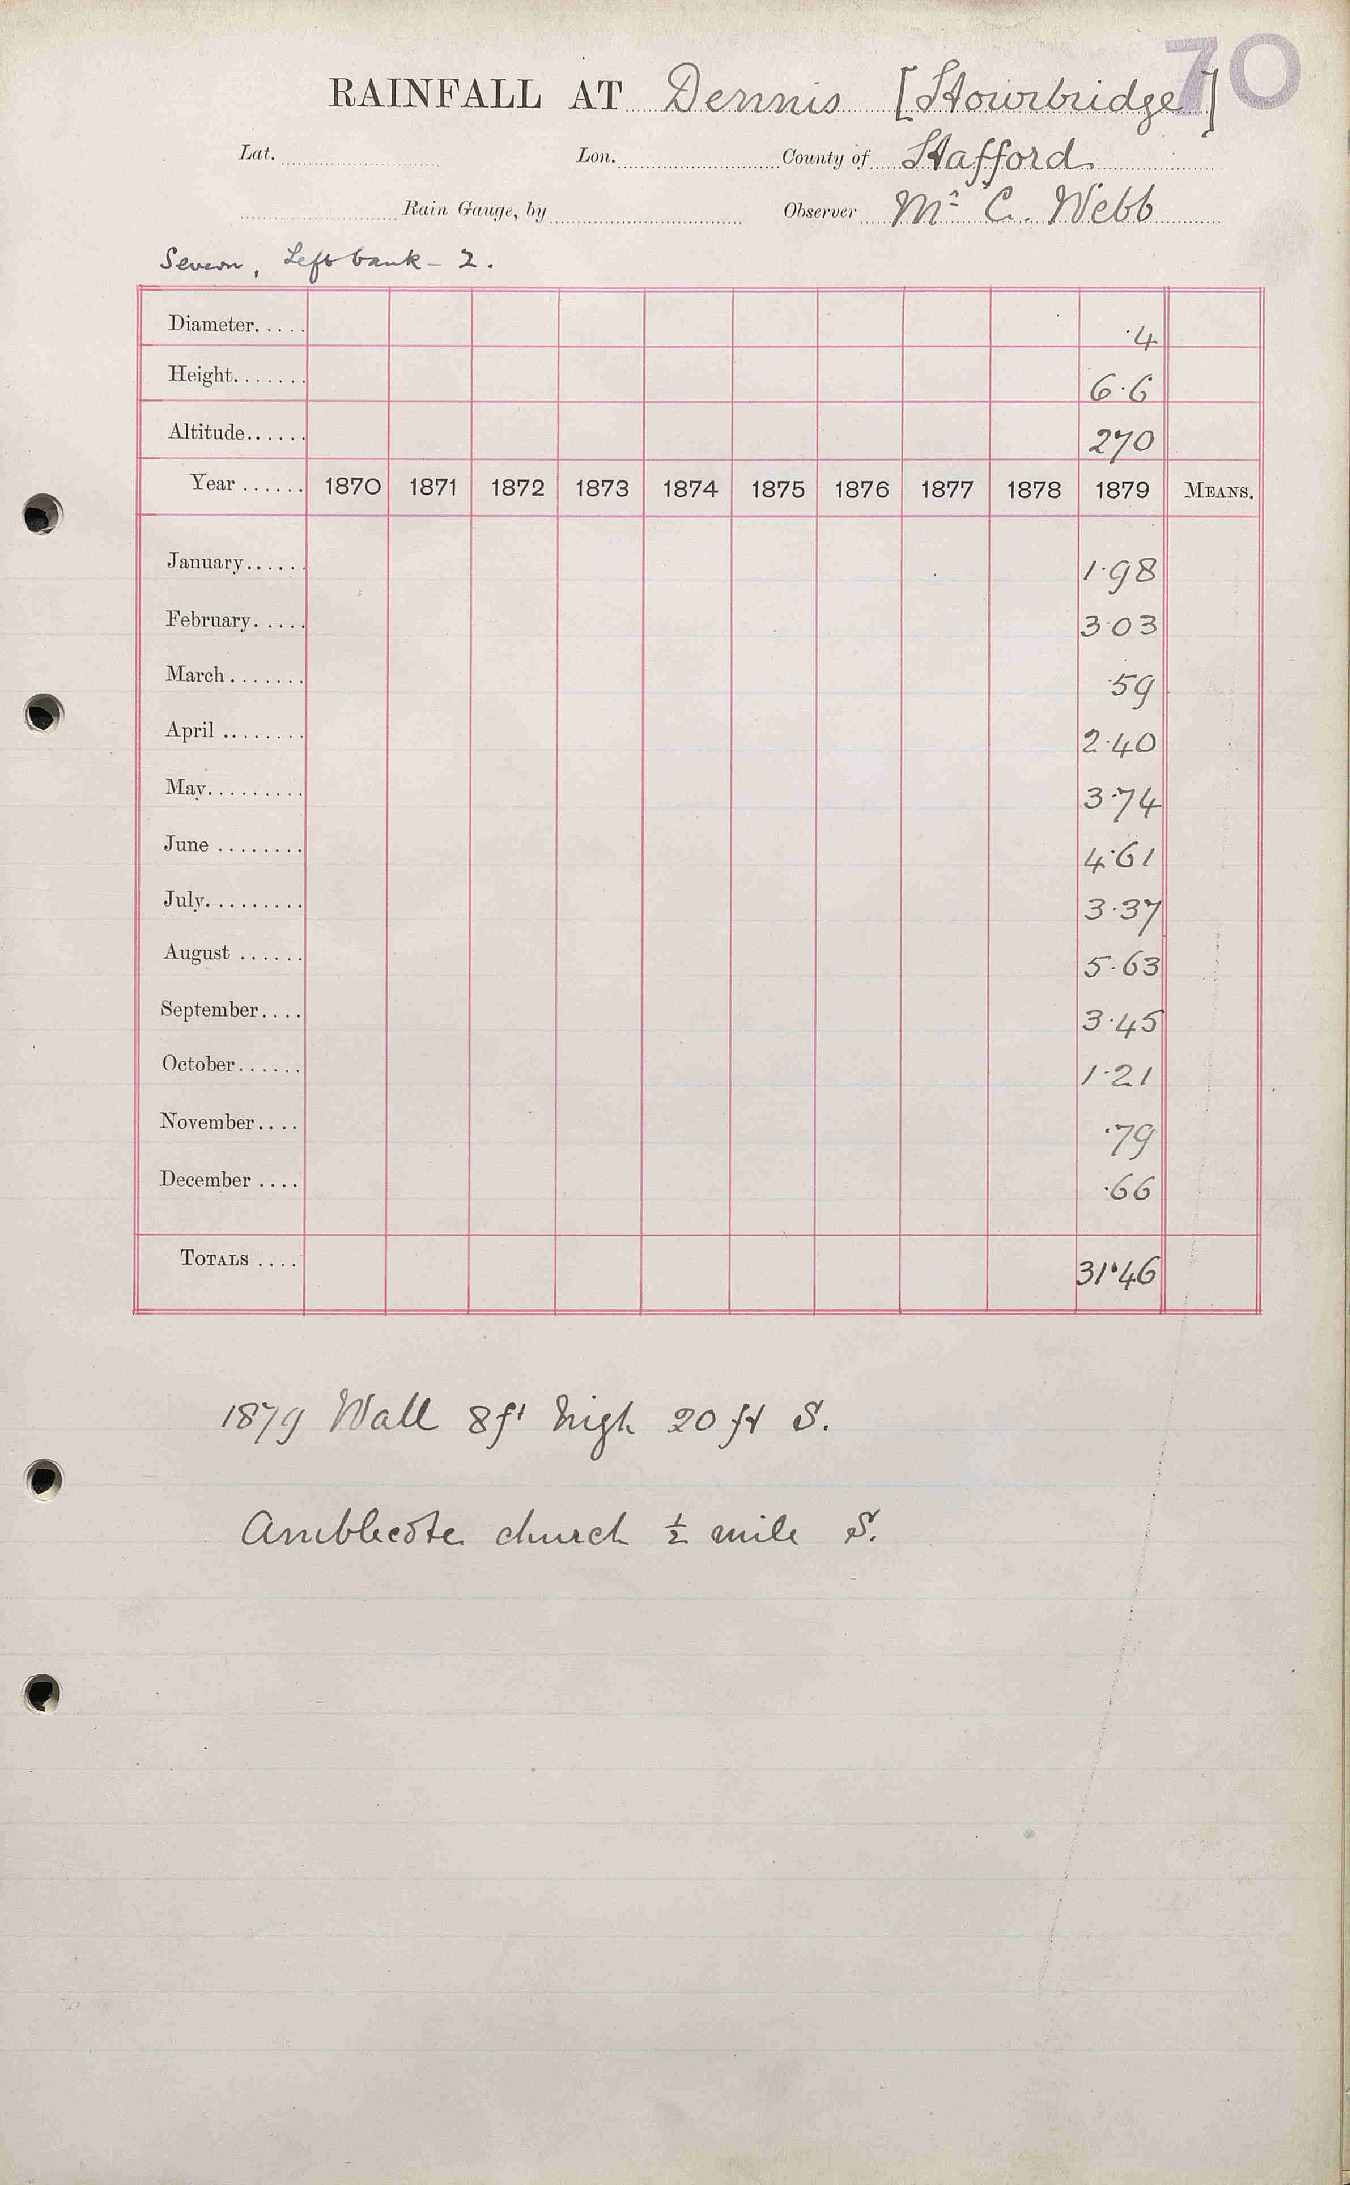 70
RAINFALL AT Dennis [Stourbridge]
Lat. Lon. County of Stafford
Rain Gauge, by Observer Mr C. Webb
Severn, Left bank - 2.
Diameter..... ·4
Height....... 6·6
Altitude...... 270
Year ...... 1870 1871 1872 1873 1874 1875 1876 1877 1878 1879 MEANS.
January...... 1·98
February..... 3·03
March....... ·59
April ........ 2·40
May......... 3·74
June ........ 4·61
July......... 3·37
August ...... 5·63
September.... 3·45
October...... 1·21
November.... ·79
December .... ·66
TOTALS .... 31·46
1879 Wall 8ft high 20 ft S.
Amblecote church ½ mile S.